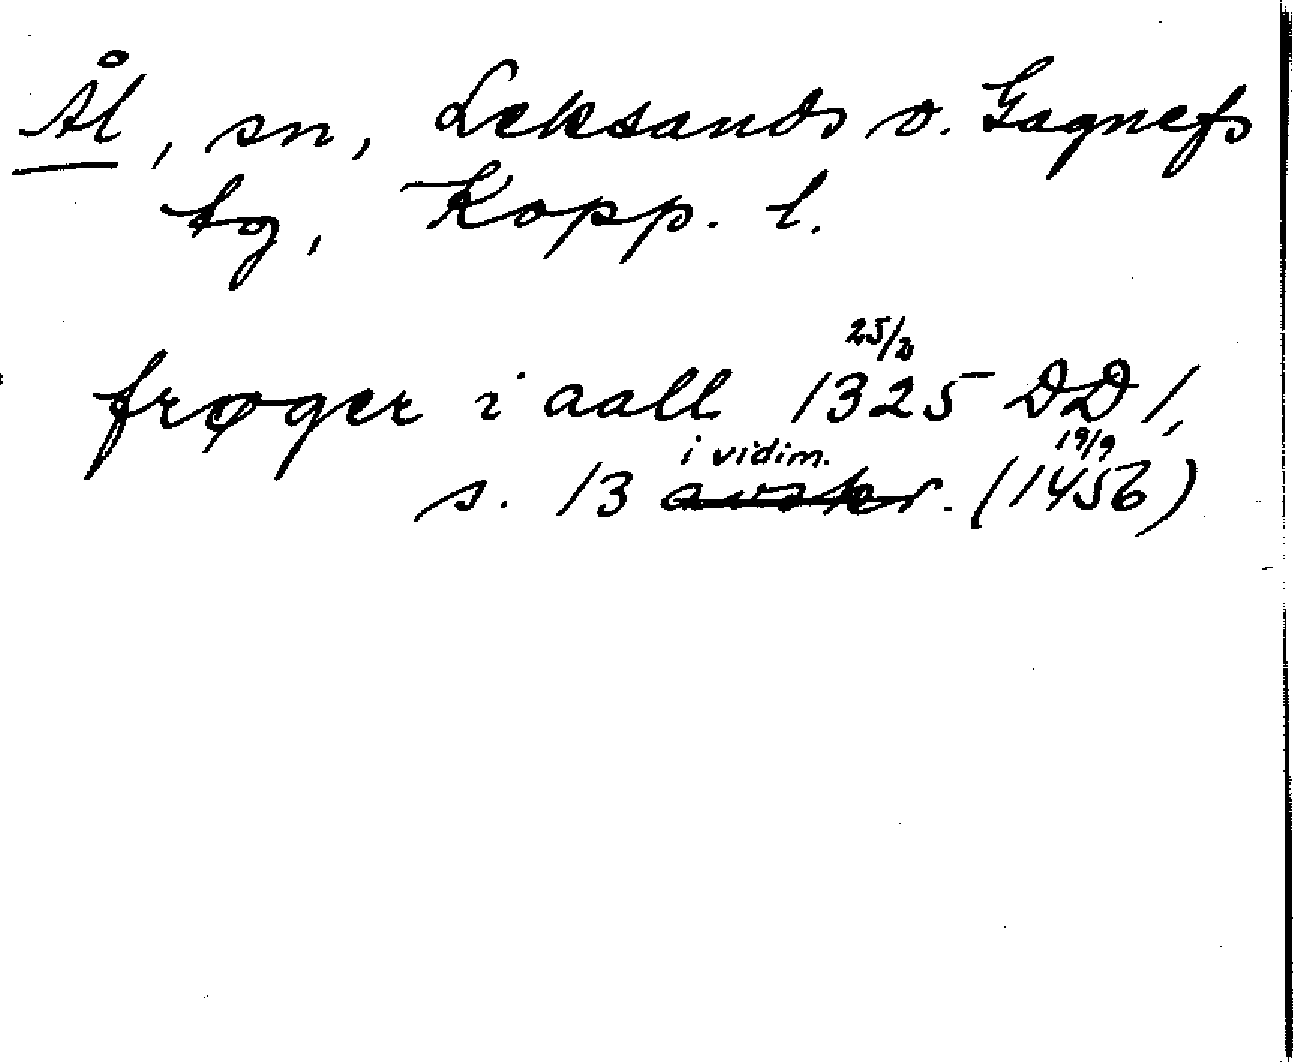 Ål, sn, Leksands o. Gagnefs
tg, Kopp. l.
25/3
frøger i aall 1325 DD 1,
i vidim. 19/9
s. 13 avskr. (1456)